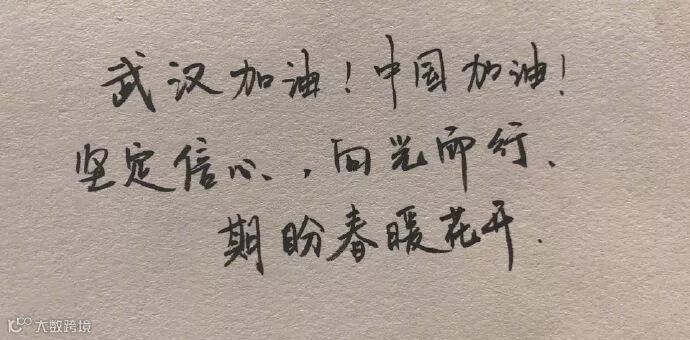 武汉加油！中国加油！
坚定信心，向光而行、
期盼春暖花开.
大数跨境